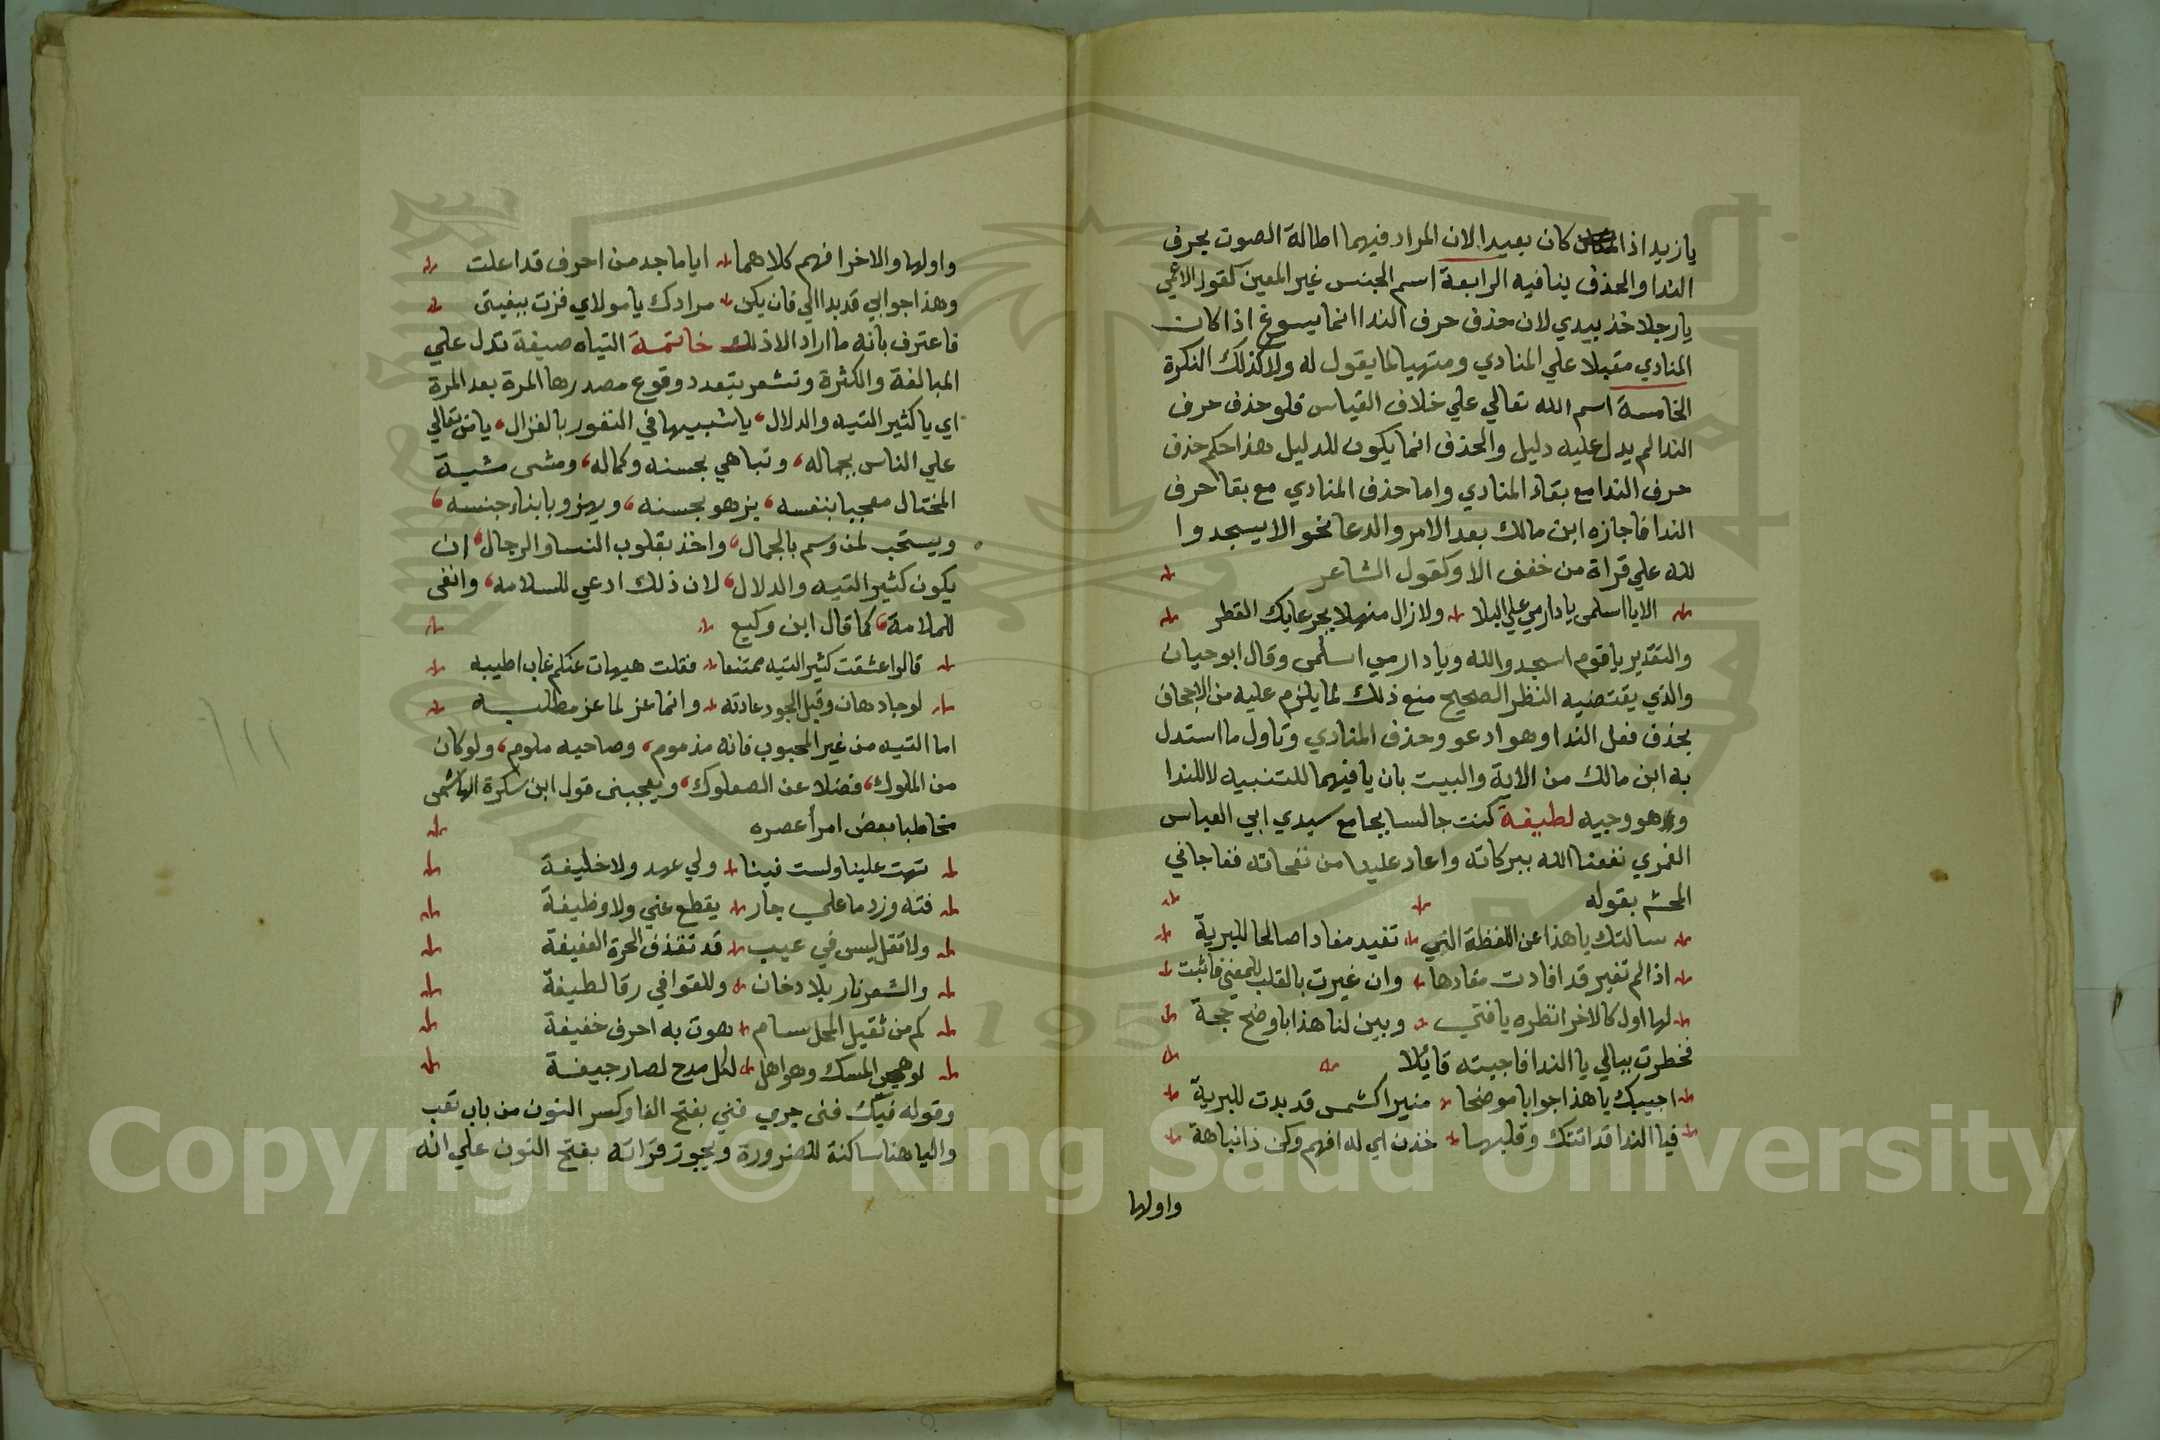 يا زيد اذا كان بعيدا لان المراد فيهما اطالة الصوت بحرف
الندا والحذف ينافيه الرابعة اسم الجنس غير المعين كقول الاعمي
يا رجلا خذ بيدي لان حذف حرف الندا انما يسوغ اذا كان
المنادي مقبلا علي المنادي ومتهيا لما يقول له ولا كذلك النكرة
الخامسة اسم الله تعالي علي خلاف القياس فلو حذف حرف
الندا لم يدل عليه دليل والحذف انما يكون للدليل هذا حكم حذف
حرف الندا مع بقاء المنادي واما حذف المنادي مع بقا حرف
الندا فاجازه ابن مالك بعد الامر والدعا نحو الا يسجدوا
لله علي قراة من خفف الا وكقول الشاعر
الا يا اسلمي يا دار مي علي البلا ولا زال منهلا بجرعايك القطر
والتقدير يا قوم اسجدوا لله ويا دار مي اسلمي وقال ابو حيان
والذي يقتضيه النظر الصحيح منع ذلك لما يلزم عليه من الاجحاف
بحذف فعل الندا وهو ادعو وحذف المنادي وتاول ما استدل
به ابن مالك من الاية والبيت بان يا فيهما للتنبيه لا للندا
وهو وجيه لطيفة كنت جالسا بجامع سيدي ابي العباس
الغمري نفعنا الله ببركاته واعاد علينا من نفحاته ففاجاني
بقوله
سالتك يا هذا عن اللفظة التي تفيد مفادا صالحا للبرية
اذا لم تغير قد افادت مفادها وان غيرت بالقلب للمعني فاثبت
لها اول كالاخر انظره يا فتي وبين لنا هذا باوضح حجة
فخطرت ببالي يا الندا فاجبته قائلا
اجيبك يا هذا جوابا موضحا منيرا كشمس قد بدت للبرية
فيا الندا قد اتتك وقلبها خذن اي له افهم وكن ذا نباهة
واولها
واولها والاخر افهم كلاهما ايا ماجد من احرف قد اعلت
وهذا جوابي قد بدا لي فان يكن مرادك يا مولاي فزت ببغيتي
فاعترف بانه ما اراد الا ذلك خاتمة التياه صيغة تدل علي
المبالغة والكثرة وتشعر بتعدد وقوع مصدرها المرة بعد المرة
اي يا كثير التيه والدلال يا شبيها في النفور بالغزال يا من تعالي
علي الناس بجماله وتباهي بحسنه وكماله ومشى مشية
المختال معجبا بنفسه يزهو بحسنه ويهزو بابناء جنسه
ويستحب لمن وسم بالجمال واخذ بقلوب النسا والرجال ان
يكون كثير التيه والدلال لان ذلك ادعي للسلامه وانفى
للملامة كما قال ابن وكيع
قالوا عشقت كثير التيه ممتنعا فقلت هيهات عنكم غاب اطيبه
لو جاد هان وقيل الجود عادته وانما عز لما عز مطلبه
اما التيه من غير المحبوب فانه مذموم وصاحبه ملوم ولو كان
من الملوك فضلا عن الصعلوك ويعجبني قول ابن سكرة الهاشمي
مخاطبا بعض امرأ عصره
تهت علينا ولست فينا ولي عهد ولا خليفة
فته وزد ما علي جار يقطع عني ولا وظيفة
ولا تقل ليس في عيب قد تقذف الحرة العفيفة
والشعر نار بلا دخان وللقوافي رقا لطيفة
كم من ثقيل المحل سام هوت به احرف خفيفة
لو هجي المسك وهو اهل لكل مدح لصار جيفة
وقوله فنى جري فني بفتح الفا وكسر النون من باب تعب
واليا هنا ساكنة للضرورة ويجوز قراته بفتح النون علي انه
Copyright © King Saud University
1957